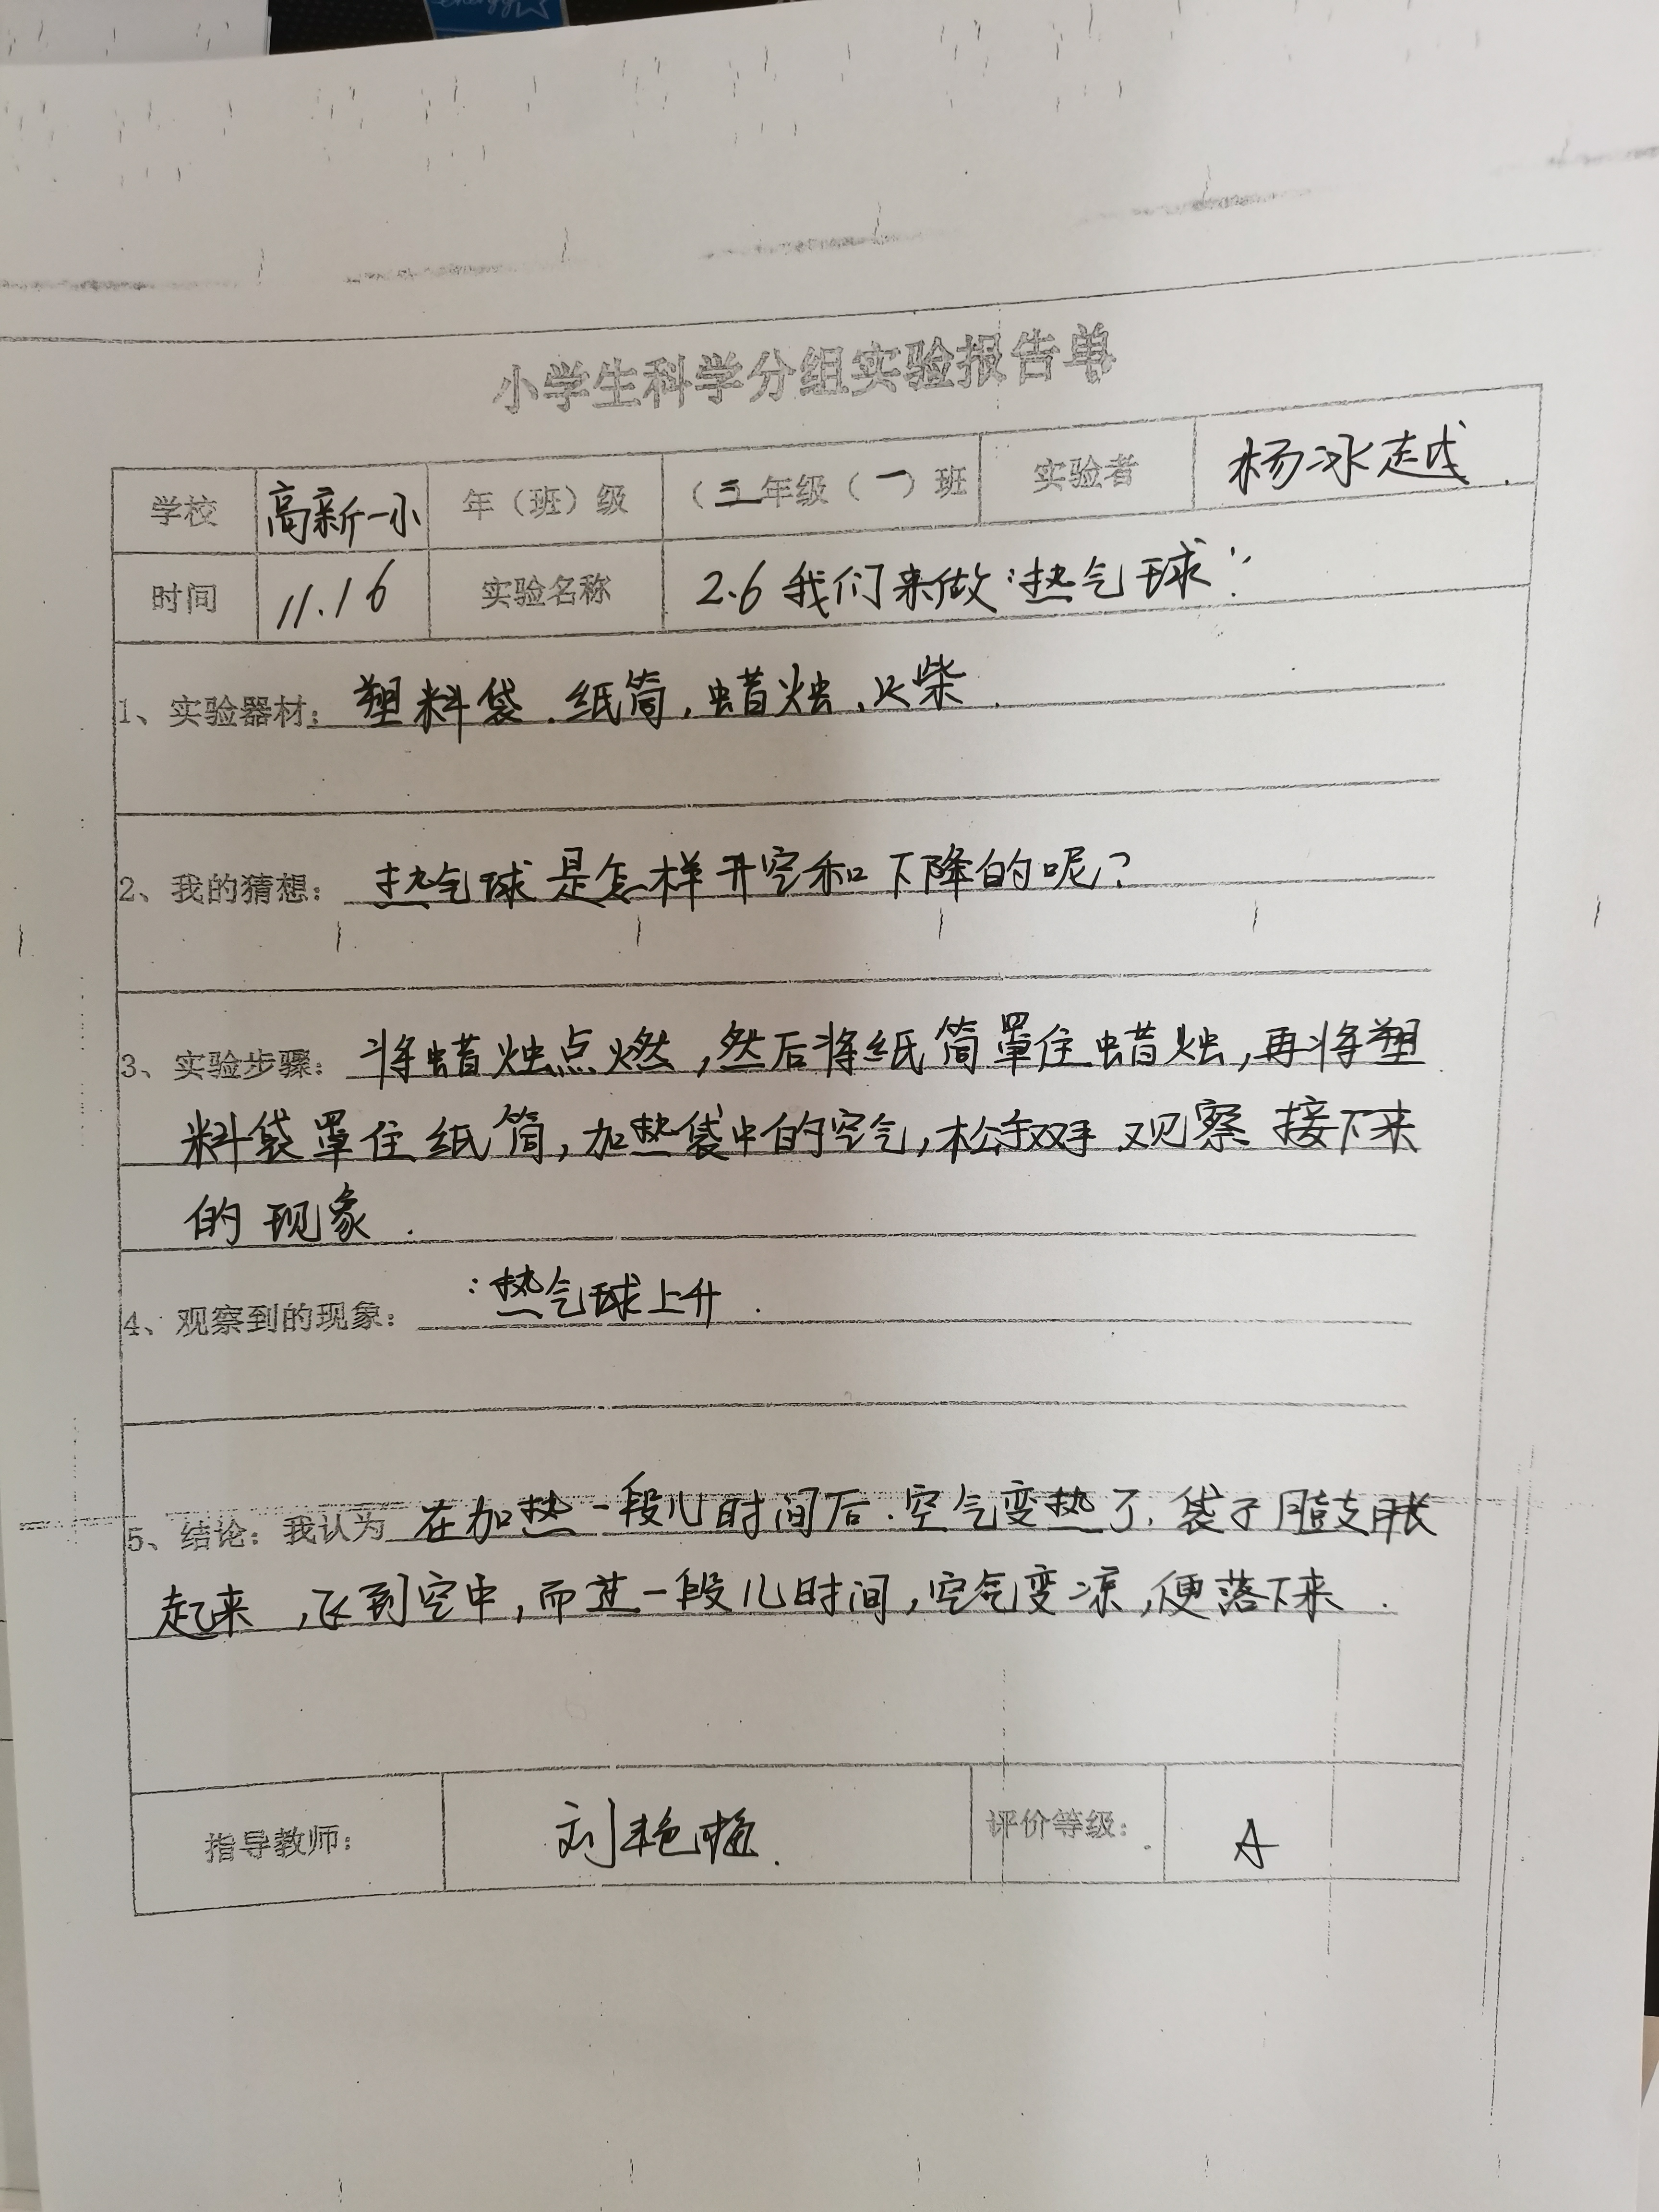 energy
小学生科学分组实验报告单
学校 高新一小 年（班）级 （三）年级（一）班 实验者 杨冰越
时间 11.16 实验名称 2.6 我们来做“热气球”
1、实验器材：塑料袋.纸筒,蜡烛、火柴.
2、我的猜想：热气球是怎样升空和下降的呢？
3、实验步骤：将蜡烛点燃,然后将纸筒罩住蜡烛,再将塑
料袋罩住纸筒,加热袋中的空气,松手双手 观察 接下来
的 现象.
4、观察到的现象：:热气球上升.
5、结论：我认为 在加热一段儿时间后.空气变热了.袋子膨胀
起来,飞到空中,而过一段儿时间,空气变凉,便落下来.
指导教师： 刘艳梅. 评价等级： A